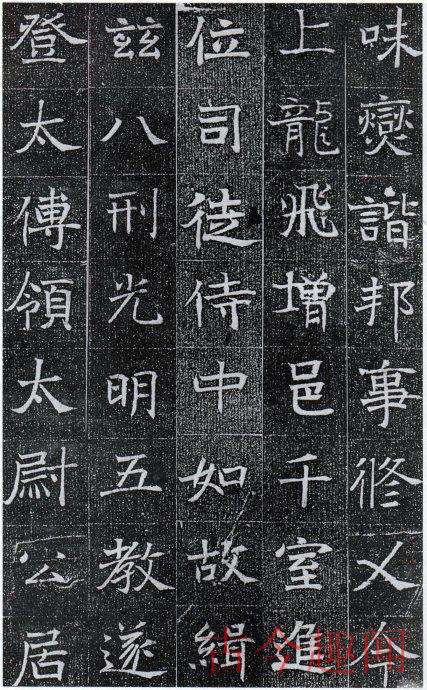 味燮諧邦事修乂今
上龍飛增邑千室進
位司徒侍中如故緝
茲八刑光明五教遂
登太傅領太尉公居
古今趣闻